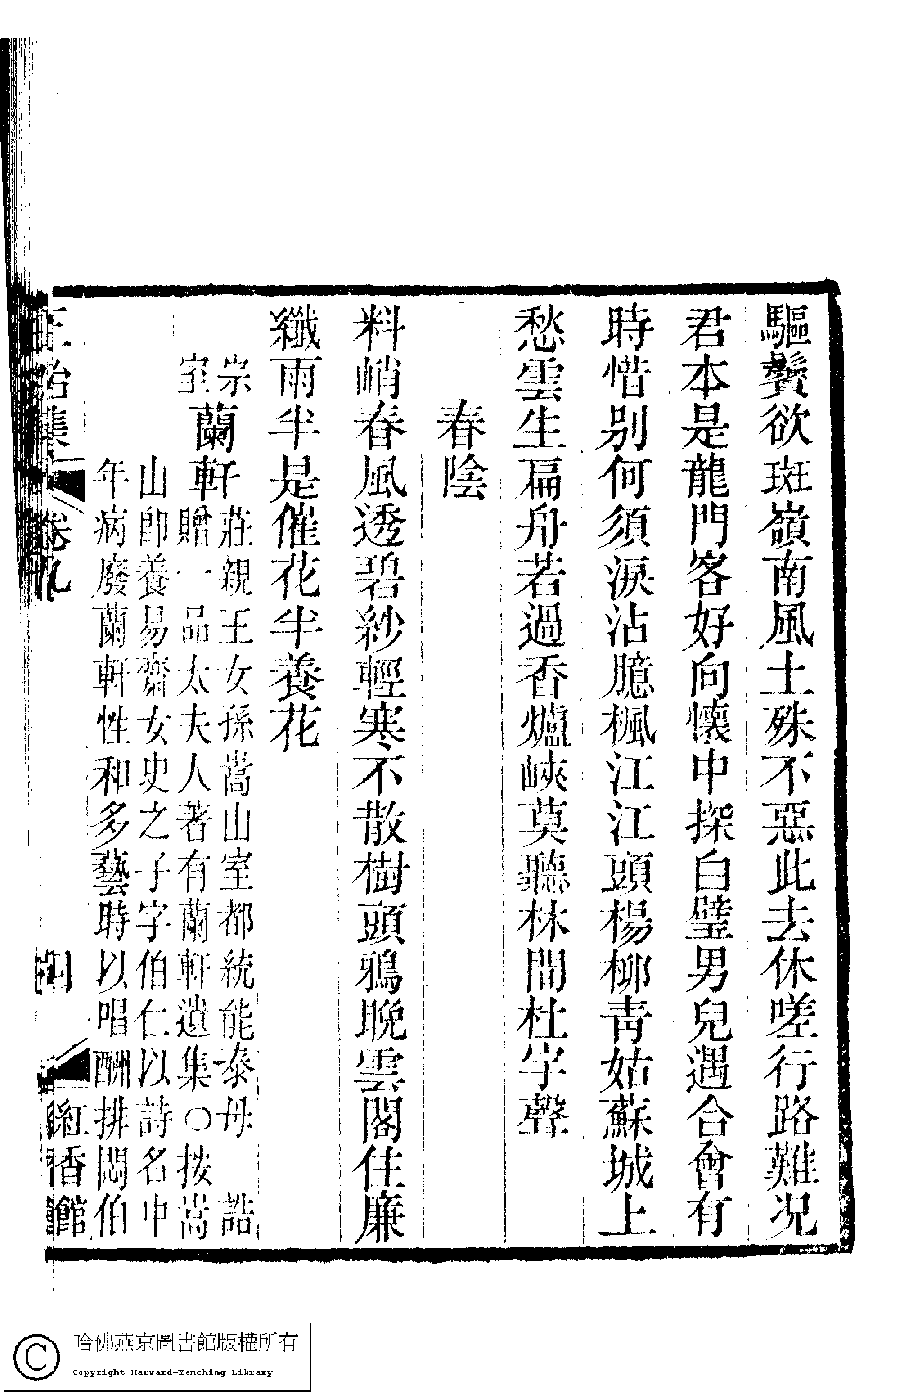 驅鬢欲斑嶺南風土殊不惡此去休嗟行路難況
君本是龍門客好向懷中探白璧男兒遇合會有
時惜别何須淚沾臆楓江江頭楊柳青姑蘇城上
愁雲生扁舟若過香爐峽莫聽林間杜宇聲
春陰
料峭春風透碧紗輕寒不散樹頭鴉晚雲閣住廉
纖雨半是催花半養花
宗室蘭軒
莊親王女孫嵩山室都統能泰母 誥
贈一品太夫人著有蘭軒遺集○按嵩
山卽養易齋女史之子字伯仁以詩名中
年病廢蘭軒性和多藝時以唱酬排悶伯
正始集 卷九 紅香館
哈佛燕京圖書館版權所有
Copyright Harvard-Yenching Library